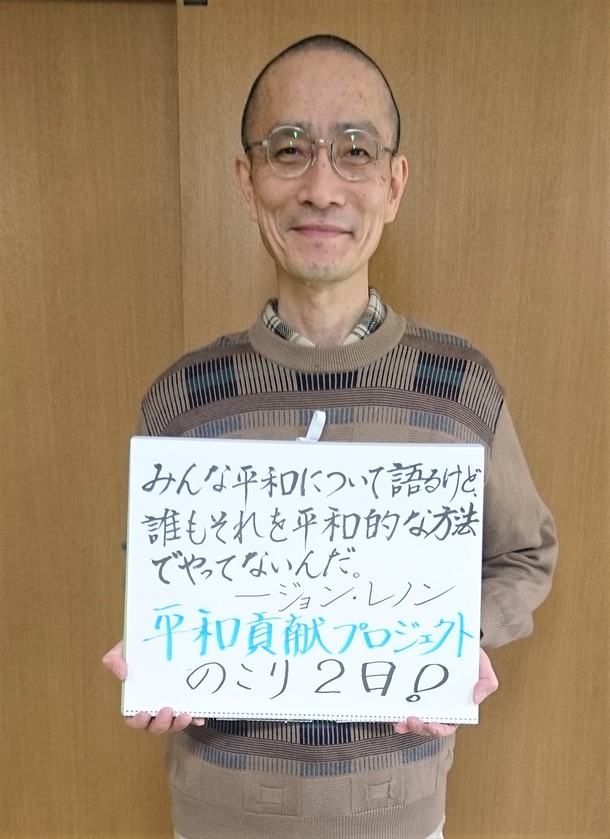 みんな平和について語るけど、
誰もそれを平和的な方法
でやってないんだ。
―ジョン・レノン
平和貢献プロジェクト
のこり2日!